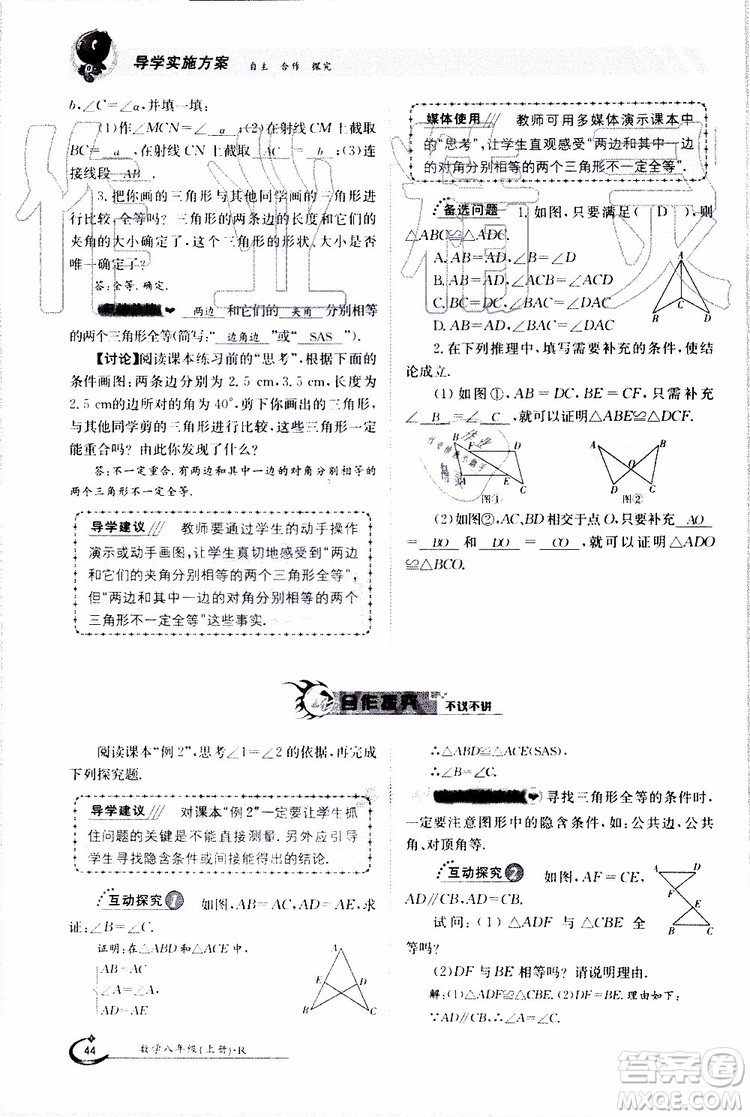 导学实施方案 自主 合作 探究
b,∠C=∠α,并填一填:
(1)作∠MCN=∠ α ;(2)在射线 CM 上截取
BC= a ,在射线 CN 上截取 AC = b ;(3)连
接线段 AB .
3.把你画的三角形与其他同学画的三角形进
行比较,全等吗?三角形的两条边的长度和它们的
夹角的大小确定了,这个三角形的形状、大小是否
唯一确定了?
答:全等.确定.
两边 和它们的 夹角 分别相等
的两个三角形全等(简写:“ 边角边 ”或“ SAS ”).
【讨论】阅读课本练习前的“思考”,根据下面的
条件画图:两边分别为2.5 cm,3.5 cm,长度为
2.5 cm的边所对的角为40°,剪下你画出的三角形,
与其他同学剪的三角形进行比较,所有的三角形一定
能重合吗?由此你发现了什么?
答:不一定重合.有两边和其中一边的对角分别相等的
两个三角形不一定全等.
导学建议 教师要通过学生的动手操作
演示或动手画图,让学生真切地感受到“两边
和它们的夹角分别相等的两个三角形全等”,
但“两边和其中一边的对角分别相等的两个
三角形不一定全等”这些事实.
媒体使用 教师可用多媒体演示课本中
的“思考”,让学生直观感受“两边和其中一边
的对角分别相等的两个三角形不一定全等”.
备选问题 1.如图,只要满足( D ),则
△ABC≌△ADC.
A.AB=AD,∠B=∠D
B.
C.
D.
A
B
C
D
2.在下列推理中,填写需要补充的条件,使结
论成立.
(1)如图①,AB=DC,BF=CE,只要补充
∠ B =∠ C ,就可以证明△ABE≌△DCF.
图① 图②
(2)如图②,AC,BD 相交于点 O,只要补充 AO
= BO 和 DO = CO ,就可以证明△ADO
≌△BCO.
合作探究 不议不讲
阅读课本“例2”,思考∠1=∠2的依据,再完成
下列探究题.
导学建议 对课本“例2”一定要让学生抓
住问题的关键是不能直接测量.另外应引导
学生寻找隐含条件或间接能得出的结论.
互动探究1 如图,AB=AC,AD=AE,求
证:∠B=∠C.
证明:在△ABD和△ACE中,
AB=AC
∠A=∠A,
AD=AE
A
E
D
B
C
∴△ABD≌△ACE(SAS).
∴∠B=∠C.
寻找三角形全等的条件时,
一定要注意图形中的隐含条件,如:公共边、公共
角、对顶角等.
互动探究2 如图,AF=CE,
AD∥CB,AD=CB.
试问:(1)△ADF 与△CBE 全
等吗?
(2)DF 与 BE 相等吗?请说明理由.
解:(1)△ADF≌△CBE.
A
D
F
E
B
C
44 数学八年级(上册)·R
答案圈
MXQE.COM